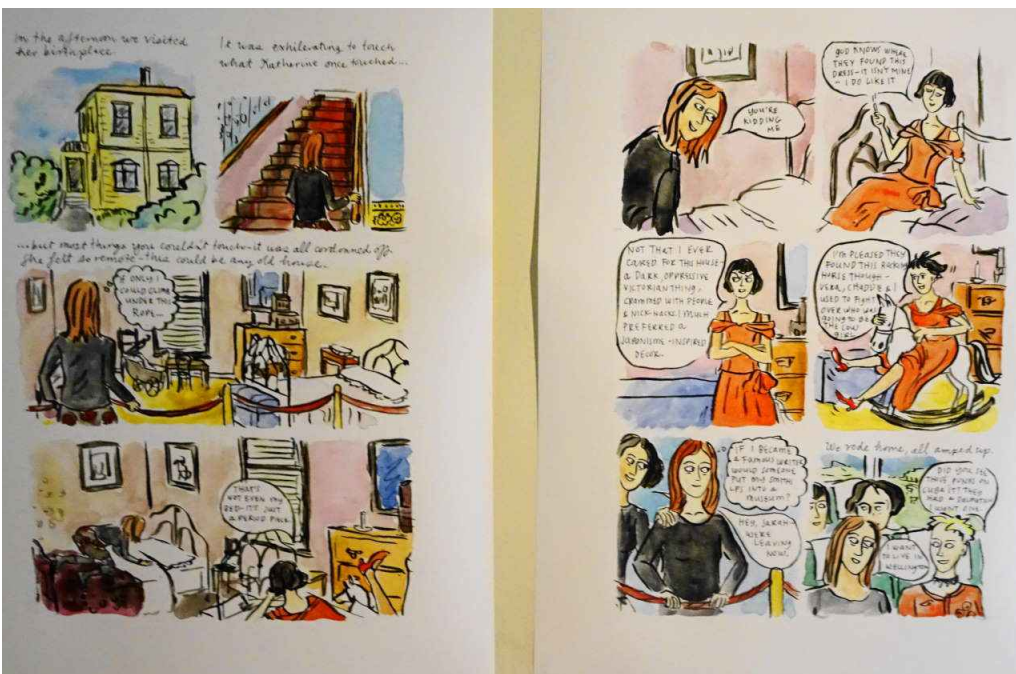 In the afternoon we visited
her birthplace.
It was exhilerating to touch
what Katherine once touched...
...but most things you couldn't touch-it was all cordonned off.
She felt so remote-this could be any old house..
IF ONLY I
COULD CLIMB
UNDER THIS
ROPE...
THAT'S
NOT EVEN MY
BED-IT'S JUST
A PERIOD PIECE.
YOU'RE
KIDDING
ME
GOD KNOWS WHERE
THEY FOUND THIS
DRESS-IT ISN'T MINE
- I DO LIKE IT
NOT THAT I EVER
CARED FOR THIS HOUSE-
A DARK, OPPRESSIVE
VICTORIAN THING,
CRAMMED WITH PEOPLE
& NICK-NACKS. I MUCH
PREFERRED A
JAPONISME-INSPIRED
DECOR.
I'M PLEASED THEY
FOUND THIS ROCKING
HORSE THOUGH-
VERA, CHADDIE & I
USED TO FIGHT
OVER WHO WAS
GOING TO BE
THE COW
GIRL.
IF I BECAME
A FAMOUS WRITER
WOULD SOMEONE
PUT MY SMITHS
LPS INTO A
MUSEUM?
HEY, SARAH-
WE'RE
LEAVING
NOW.
We rode home, all amped up.
DID YOU SEE
THOSE PUNKS ON
CUBA ST? THEY
HAD A DALMATIAN
I WANT ONE.
I WANT
TO LIVE IN
WELLINGTON